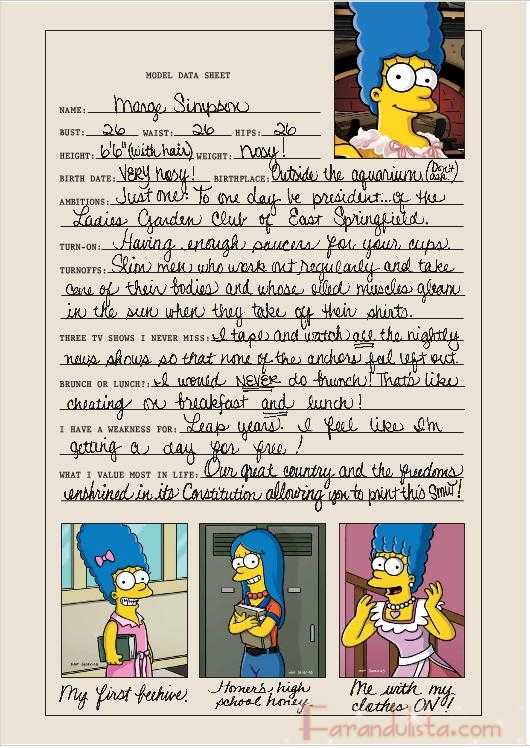 MODEL DATA SHEET
NAME: Marge Simpson
BUST: 26 WAIST: 26 HIPS: 26
HEIGHT: 6'6" (with hair) WEIGHT: nosy!
BIRTH DATE: VERY nosy! BIRTHPLACE: Outside the aquarium (Don't ask.)
AMBITIONS: Just one: To one day be president...of the
Ladies Garden Club of East Springfield.
TURN-ON: Having enough saucers for your cups.
TURNOFFS: Slim men who work out regularly and take
care of their bodies and whose oiled muscles gleam
in the sun when they take off their shirts.
THREE TV SHOWS I NEVER MISS: I tape and watch all the nightly
news shows so that none of the anchors feel left out.
BRUNCH OR LUNCH?: I would NEVER do brunch! That's like
cheating on breakfast and lunch!
I HAVE A WEAKNESS FOR: Leap years. I feel like I'm
getting a day for free!
WHAT I VALUE MOST IN LIFE: Our great country and the freedoms
enshrined in its Constitution allowing you to print this smut!
My first beehive.
Homer's high
school honey.
Me with my
clothes ON!
Farandulista.com